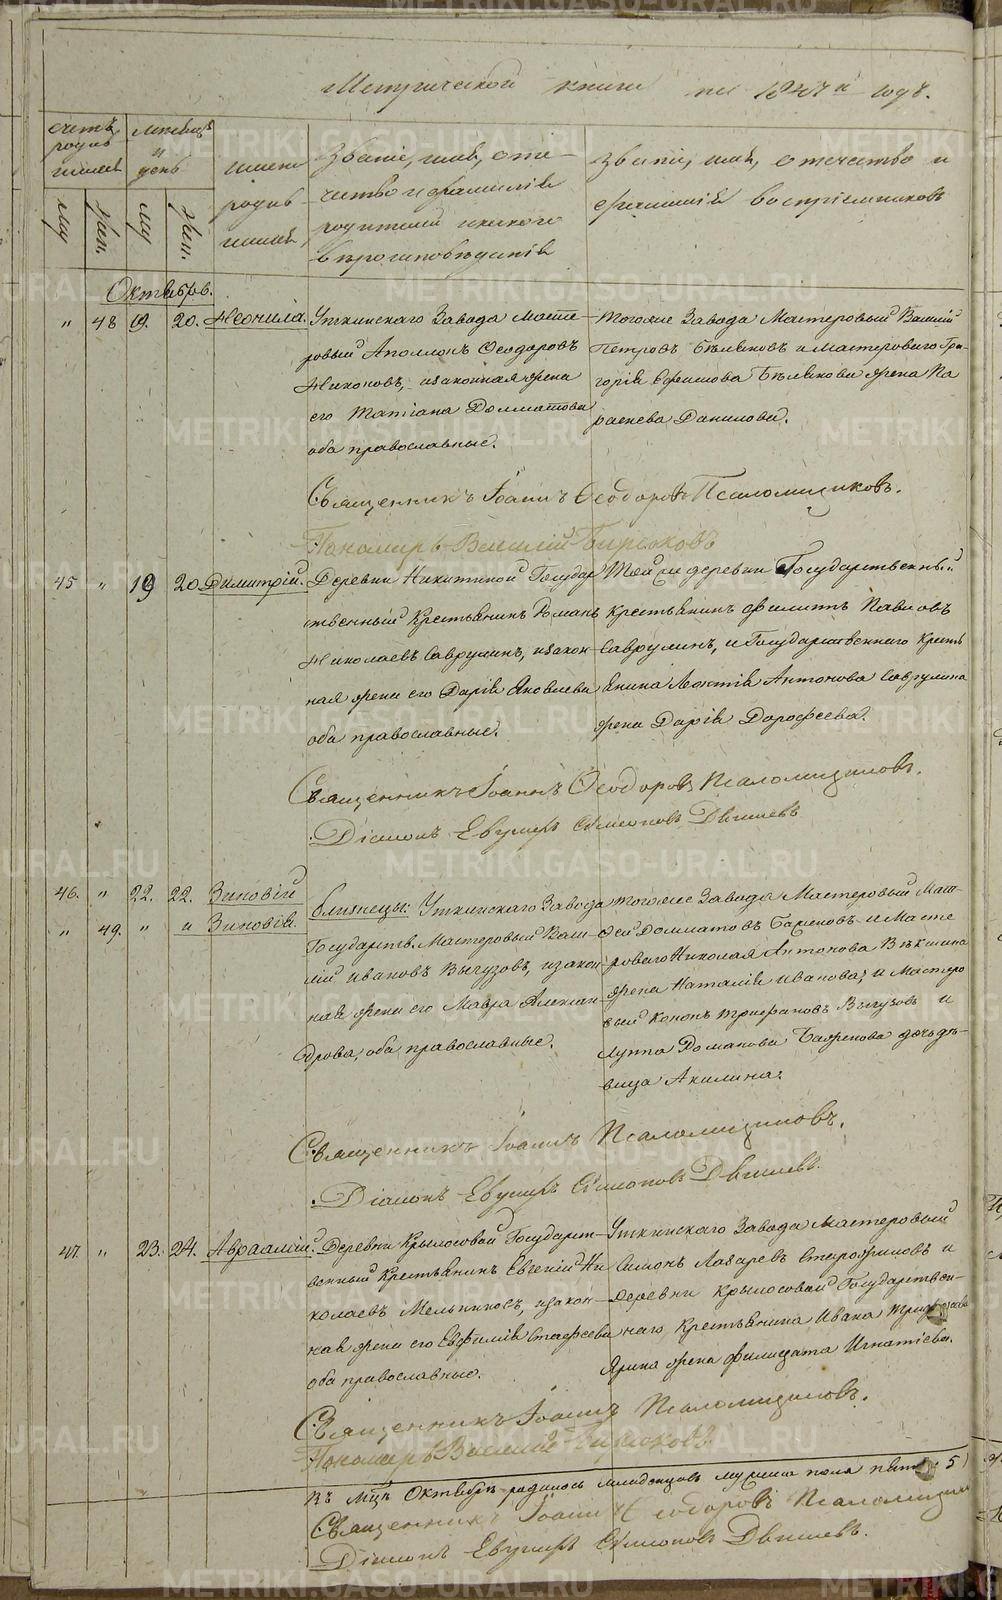 Метрической книги на 1847й годъ.
счетъ родив шихся
мѣсяцъ и день
имена родив шихся
Званіе, имя, оте-
чество и фамилія
родителей и какого
вѣроисповѣданія
Званіе, имя, отечество и
фамилія воспріемниковъ
Му Жен. Му Жен.
Октябрь.
" 48 19. 20. Неонила.
Уткинскаго Завода Масте-
ровый Аполлонъ Ѳеодоровъ
Никоновъ, изаконная жена
его Татіана Долматова
оба православные.
Тогоже Завода Мастеровый Василій
Петровъ Бѣляковъ и Мастероваго Гри-
горія Ефимова Бѣлякова жена Па
раскева Данилова.
Священникъ Іоаннъ Ѳеодоровъ Псаломщиковъ.
Пономарь Василій Бирюковъ
45 " 19 20. Димитрій.
Деревни Никитиной Государ
ственный Крестьянинъ Романъ
Николаевъ Саврулинъ, изакон-
ная жена его Дарія Яковлева
оба православные.
Той же деревни Государственный
Крестьянинъ Филиппъ Павловъ
Саврулинъ, и Государственнаго Кресть
янина Леонтія Антонова Саврулина
жена Дарія Дорофеева.
Священникъ Іоаннъ Ѳеодоровъ Псаломщиковъ.
Діаконъ Евгмиръ Симеоновъ
46. " 22. 22. Зиновій
" 49. " и Зиновія.
близнецы: Уткинскаго Завода
Государств. Мастеровый Васи-
лій Ивановъ Вычузовъ, изакон
ная жена его Мавра Алексан-
дрова, оба православные.
тогоже Завода Мастеровый Мат-
фей Долматовъ и Масте
роваго Николая Антонова Вѣкшина
жена Наталія Иванова; и Мастеро
вый Кононъ Трифановъ Вычузовъ и
Луппа Романова дочь дѣ-
вица Акилина.
Священникъ Іоаннъ Псаломщиковъ.
Діаконъ Евгмиръ Симеоновъ
47. " 23. 24. Авраамій.
Деревни Крылосовой Государст-
венный Крестьянинъ Евгеній Ни
колаевъ Мельниковъ, изакон-
ная жена его Евфимія Евстафеева
оба православные.
Уткинскаго Завода Мастеровый
Симонъ Лазаревъ и
деревни Крылосовой Государствен-
наго Крестьянина Ивана
Ярина жена Филицата Игнатіева.
Священникъ Іоаннъ Псаломщиковъ.
Пономарь Василій Бирюковъ
Въ Мцѣ Октябрѣ родилось младенцовъ мужеска пола пять 5)
Священникъ Іоаннъ Ѳеодоровъ
Діаконъ Евгмиръ Симеоновъ
METRIKI.GASO-URAL.RU